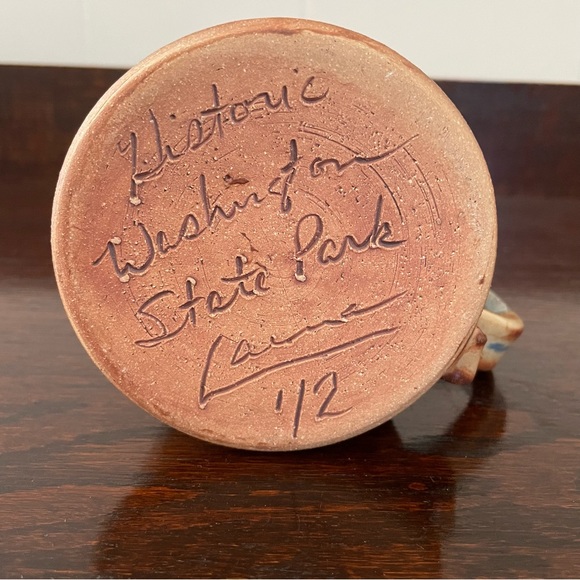 Historic
Washington
State Park
'12